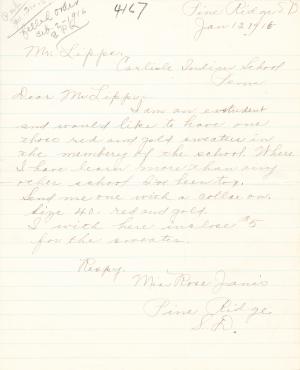 4167
Killed order
Feb. 3-1916
Pine Ridge, S.D.
Jan 12, 1916
Mr. Lipper,
Carlisle Indian School
Penn.
Dear Mr. Lipp;
I am an exstudent
and would like to have one
those red and gold sweaters in
the memory of the school. Where
I have learn more than any
other school I've been to.
Send me one with a collar on.
Size 40. red and gold.
I with here inclose $5
for the sweater.
Respy.
Miss Rose Janis
Pine Ridge
S.D.